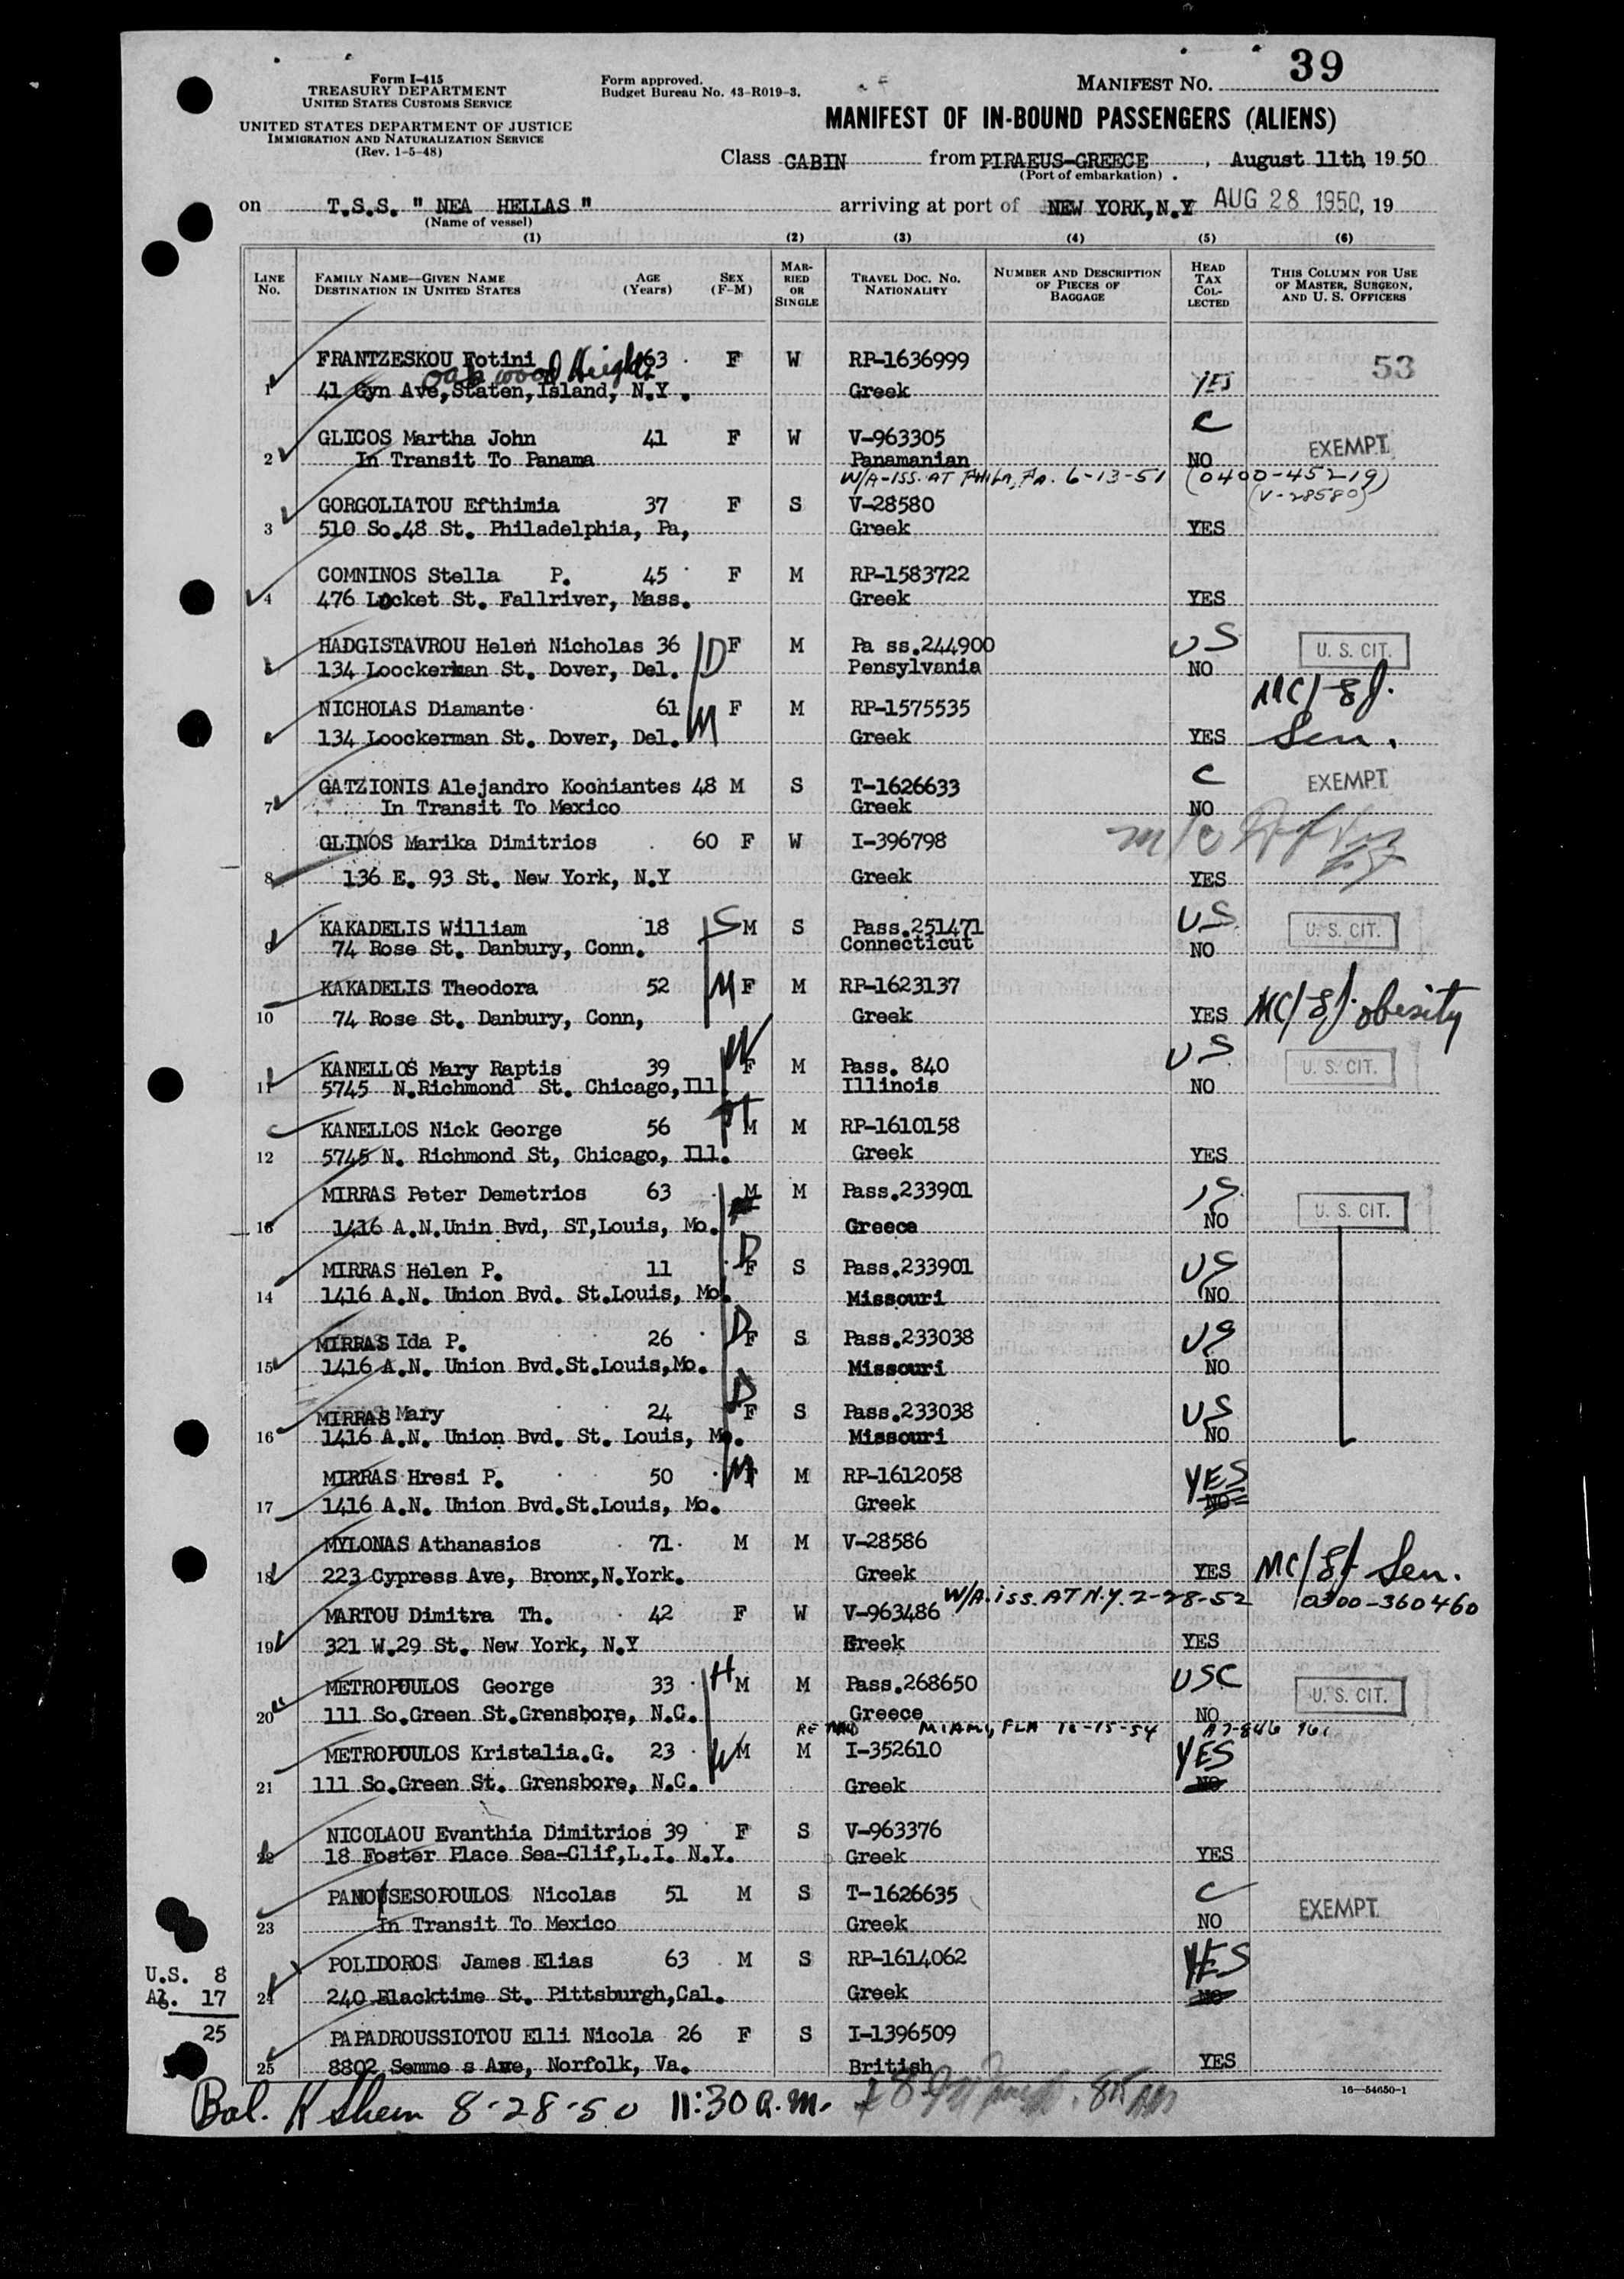 39
Form I-415
TREASURY DEPARTMENT
UNITED STATES CUSTOMS SERVICE
UNITED STATES DEPARTMENT OF JUSTICE
IMMIGRATION AND NATURALIZATION SERVICE
(Rev. 1-5-48)
Form approved.
Budget Bureau No. 43-R019-3.
MANIFEST NO.
MANIFEST OF IN-BOUND PASSENGERS (ALIENS)
Class CABIN from PIRAEUS-GREECE, August 11th, 1950
(Port of embarkation)
on T.S.S. " NEA HELLAS " arriving at port of NEW YORK, N.Y AUG 28 1950, 19
(Name of vessel)
(1) (2) (3) (4) (5) (6)
LINE No. FAMILY NAME—GIVEN NAME DESTINATION IN UNITED STATES AGE (Years) SEX (F-M) MARRIED OR SINGLE TRAVEL DOC. NO. NATIONALITY NUMBER AND DESCRIPTION OF PIECES OF BAGGAGE HEAD TAX COLLECTED THIS COLUMN FOR USE OF MASTER, SURGEON, AND U. S. OFFICERS
FRANTZESKOU Fotini 63 F W RP-1636999 53
oakwood Heights
1 41 Gyn Ave, Staten, Island, N.Y. Greek YES
GLICOS Martha John 41 F W V-963305 C EXEMPT
2 In Transit To Panama Panamanian NO
W/A-ISS. AT PHILA, PA. 6-13-51 (0400-45219)
(V-28580)
GORGOLIATOU Efthimia 37 F S V-28580
3 510 So.48 St. Philadelphia, Pa, Greek YES
COMNINOS Stella P. 45 F M RP-1583722
4 476 Locket St. Fallriver, Mass. Greek YES
HADGISTAVROU Helen Nicholas 36 D F M Pa ss.244900 US U. S. CIT.
5 134 Loockerman St. Dover, Del. Pensylvania NO
NICHOLAS Diamante 61 M F M RP-1575535 MC/
6 134 Loockerman St. Dover, Del. Greek YES Sen.
GATZIONIS Alejandro Kochiantes 48 M S T-1626633 C EXEMPT
7 In Transit To Mexico Greek NO
GLINOS Marika Dimitrios 60 F W I-396798
8 136 E. 93 St. New York, N.Y Greek YES
KAKADELIS William 18 S M S Pass.251471 US U. S. CIT.
9 74 Rose St. Danbury, Conn. Connecticut NO
KAKADELIS Theodora 52 M F M RP-1623137
10 74 Rose St. Danbury, Conn, Greek YES MC/ obesity
KANELLOS Mary Raptis 39 W F M Pass. 840 US U. S. CIT.
11 5745 N.Richmond St. Chicago, Ill. Illinois NO
KANELLOS Nick George 56 H M M RP-1610158
12 5745 N. Richmond St, Chicago, Ill. Greek YES
MIRRAS Peter Demetrios 63 M M Pass.233901 U. S. CIT.
13 1416 A.N.Unin Bvd, ST,Louis, Mo. Greece NO
MIRRAS Helen P. 11 D F S Pass.233901 US
14 1416 A.N. Union Bvd. St.Louis, Mo. Missouri NO
MIRRAS Ida P. 26 D F S Pass.233038 US
15 1416 A.N. Union Bvd.St.Louis,Mo. Missouri NO
MIRRAS Mary 24 D F S Pass.233038 US
16 1416 A.N. Union Bvd. St. Louis, Mo. Missouri NO
MIRRAS Hresi P. 50 M M RP-1612058 YES
17 1416 A.N. Union Bvd.St.Louis, Mo. Greek NO
MYLONAS Athanasios 71 M M V-28586
18 223 Cypress Ave, Bronx,N.York. Greek YES MC/ Sen.
W/A. iss. AT N.Y. 2-28-52 0300-360460
MARTOU Dimitra Th. 42 F W V-963486
19 321 W.29 St. New York, N.Y Greek YES
METROPOULOS George 33 H M M Pass.268650 USC U. S. CIT.
20 111 So.Green St.Grensbore, N.C. Greece NO
MIAMI, FLA
METROPOULOS Kristalia.G. 23 W M M I-352610 YES
21 111 So.Green St. Grensbore, N.C. Greek NO
NICOLAOU Evanthia Dimitrios 39 F S V-963376
22 18 Foster Place Sea-Clif,L.I. N.Y. Greek YES
PANOUSESOPOULOS Nicolas 51 M S T-1626635 C EXEMPT
23 In Transit To Mexico Greek NO
POLIDOROS James Elias 63 M S RP-1614062 YES
24 240 Blacktime St. Pittsburgh,Cal. Greek NO
PAPADROUSSIOTOU Elli Nicola 26 F S I-1396509
25 8802 Semmo s Ave, Norfolk, Va. British YES
U.S. 8
Al. 17
25
16—54650-1
Bal. K Shem 8-28-50 11:30 a.m.